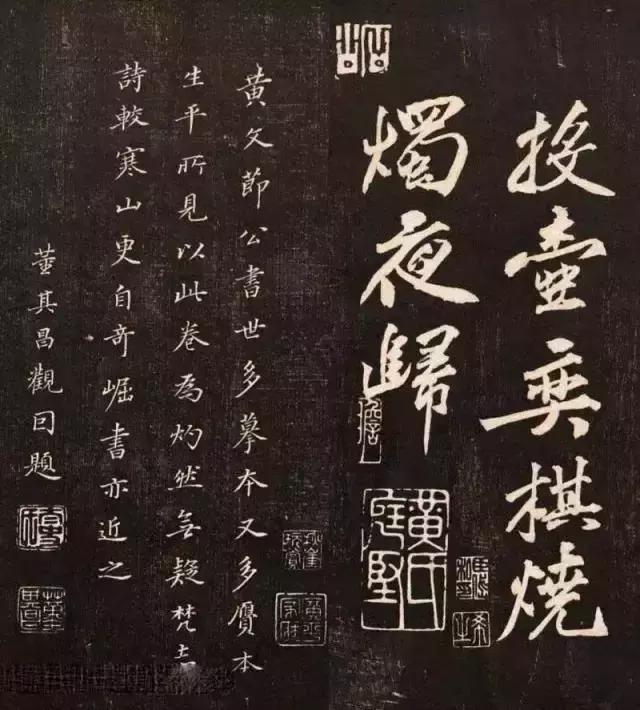 投壺弈棋燒
燭夜歸
黃氏庭堅
黃文節公書世多摹本又多贋本
生平所見以此卷為灼然無疑梵志
詩較寒山更自奇崛書亦近之
董其昌觀因題